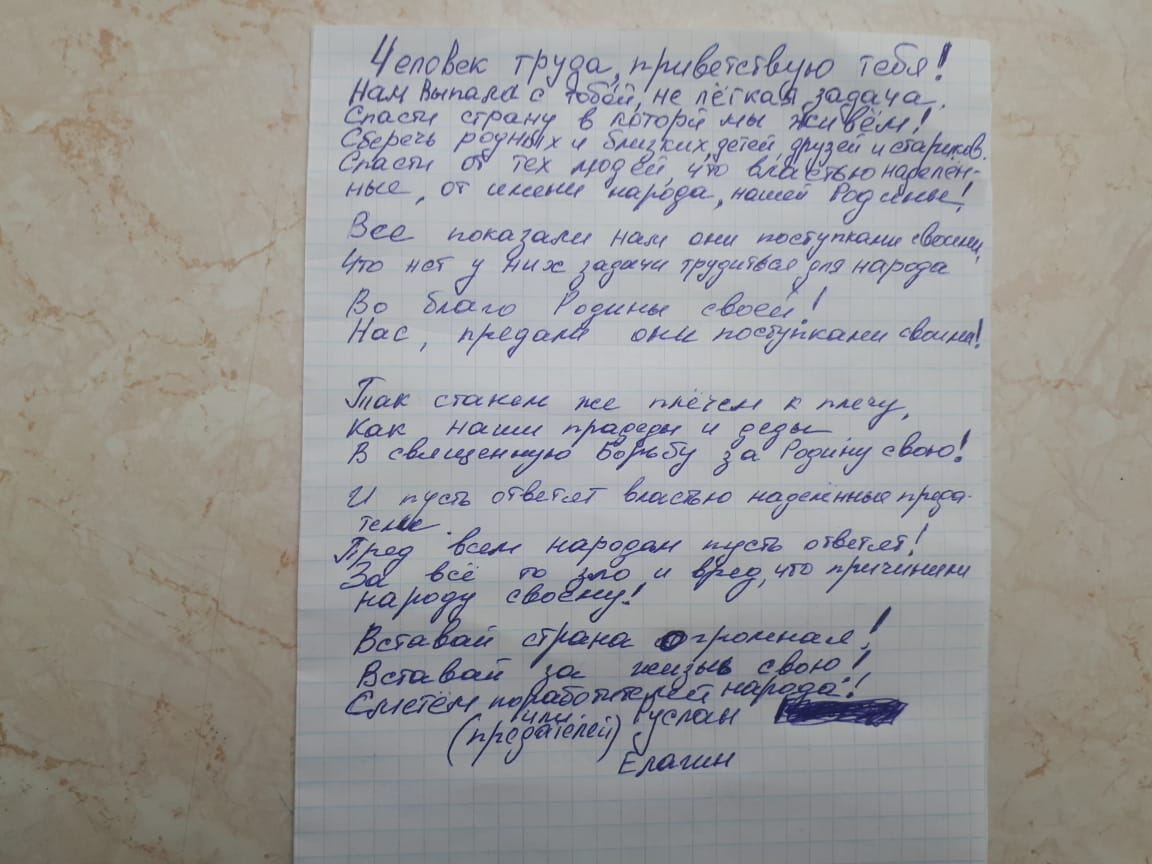 Человек труда, приветствую тебя!
Нам выпала с тобой, не лёгкая задача.
Спасти страну в которй мы живём!
Сберечь родных и близких, детей, друзей и стариков.
Спасти от тех людей, что властью наделён-
ные, от имени народа, нашей Родины!
Все показали нам они поступками своими,
Что нет у них задачи трудиться для народа
Во благо Родины своей!
Нас, предали они поступками своими!
Так станем же плечем к плечу,
Как наши прадеды и деды
В священную борьбу за Родину свою!
И пусть ответят властью наделённые преда-
тели.
Пред всем народам пусть ответят!
За всё то зло и вред, что причинили
народу своему!
Вставай страна огромная!
Вставай за жизнь свою!
Сметём поработителей народа!
или Руслан
(предателей)
Елагин